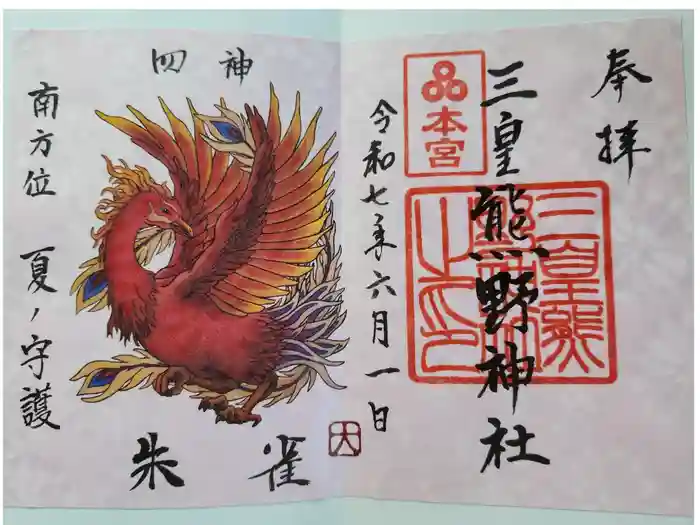 奉拝
三皇熊野神社
本宮
三皇熊
之印
令和七年六月一日
四神
朱雀
南方位 夏ノ守護